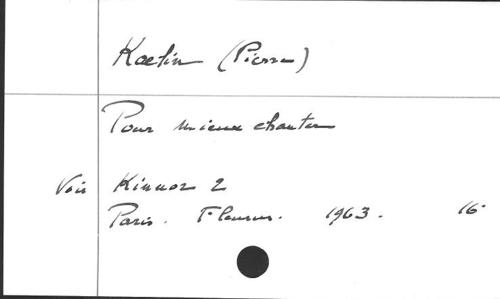 Kaelin (Pierre)
Pour mieux chanter
Voir Kinnor 2
Paris. Fleurus. 1963. 16°